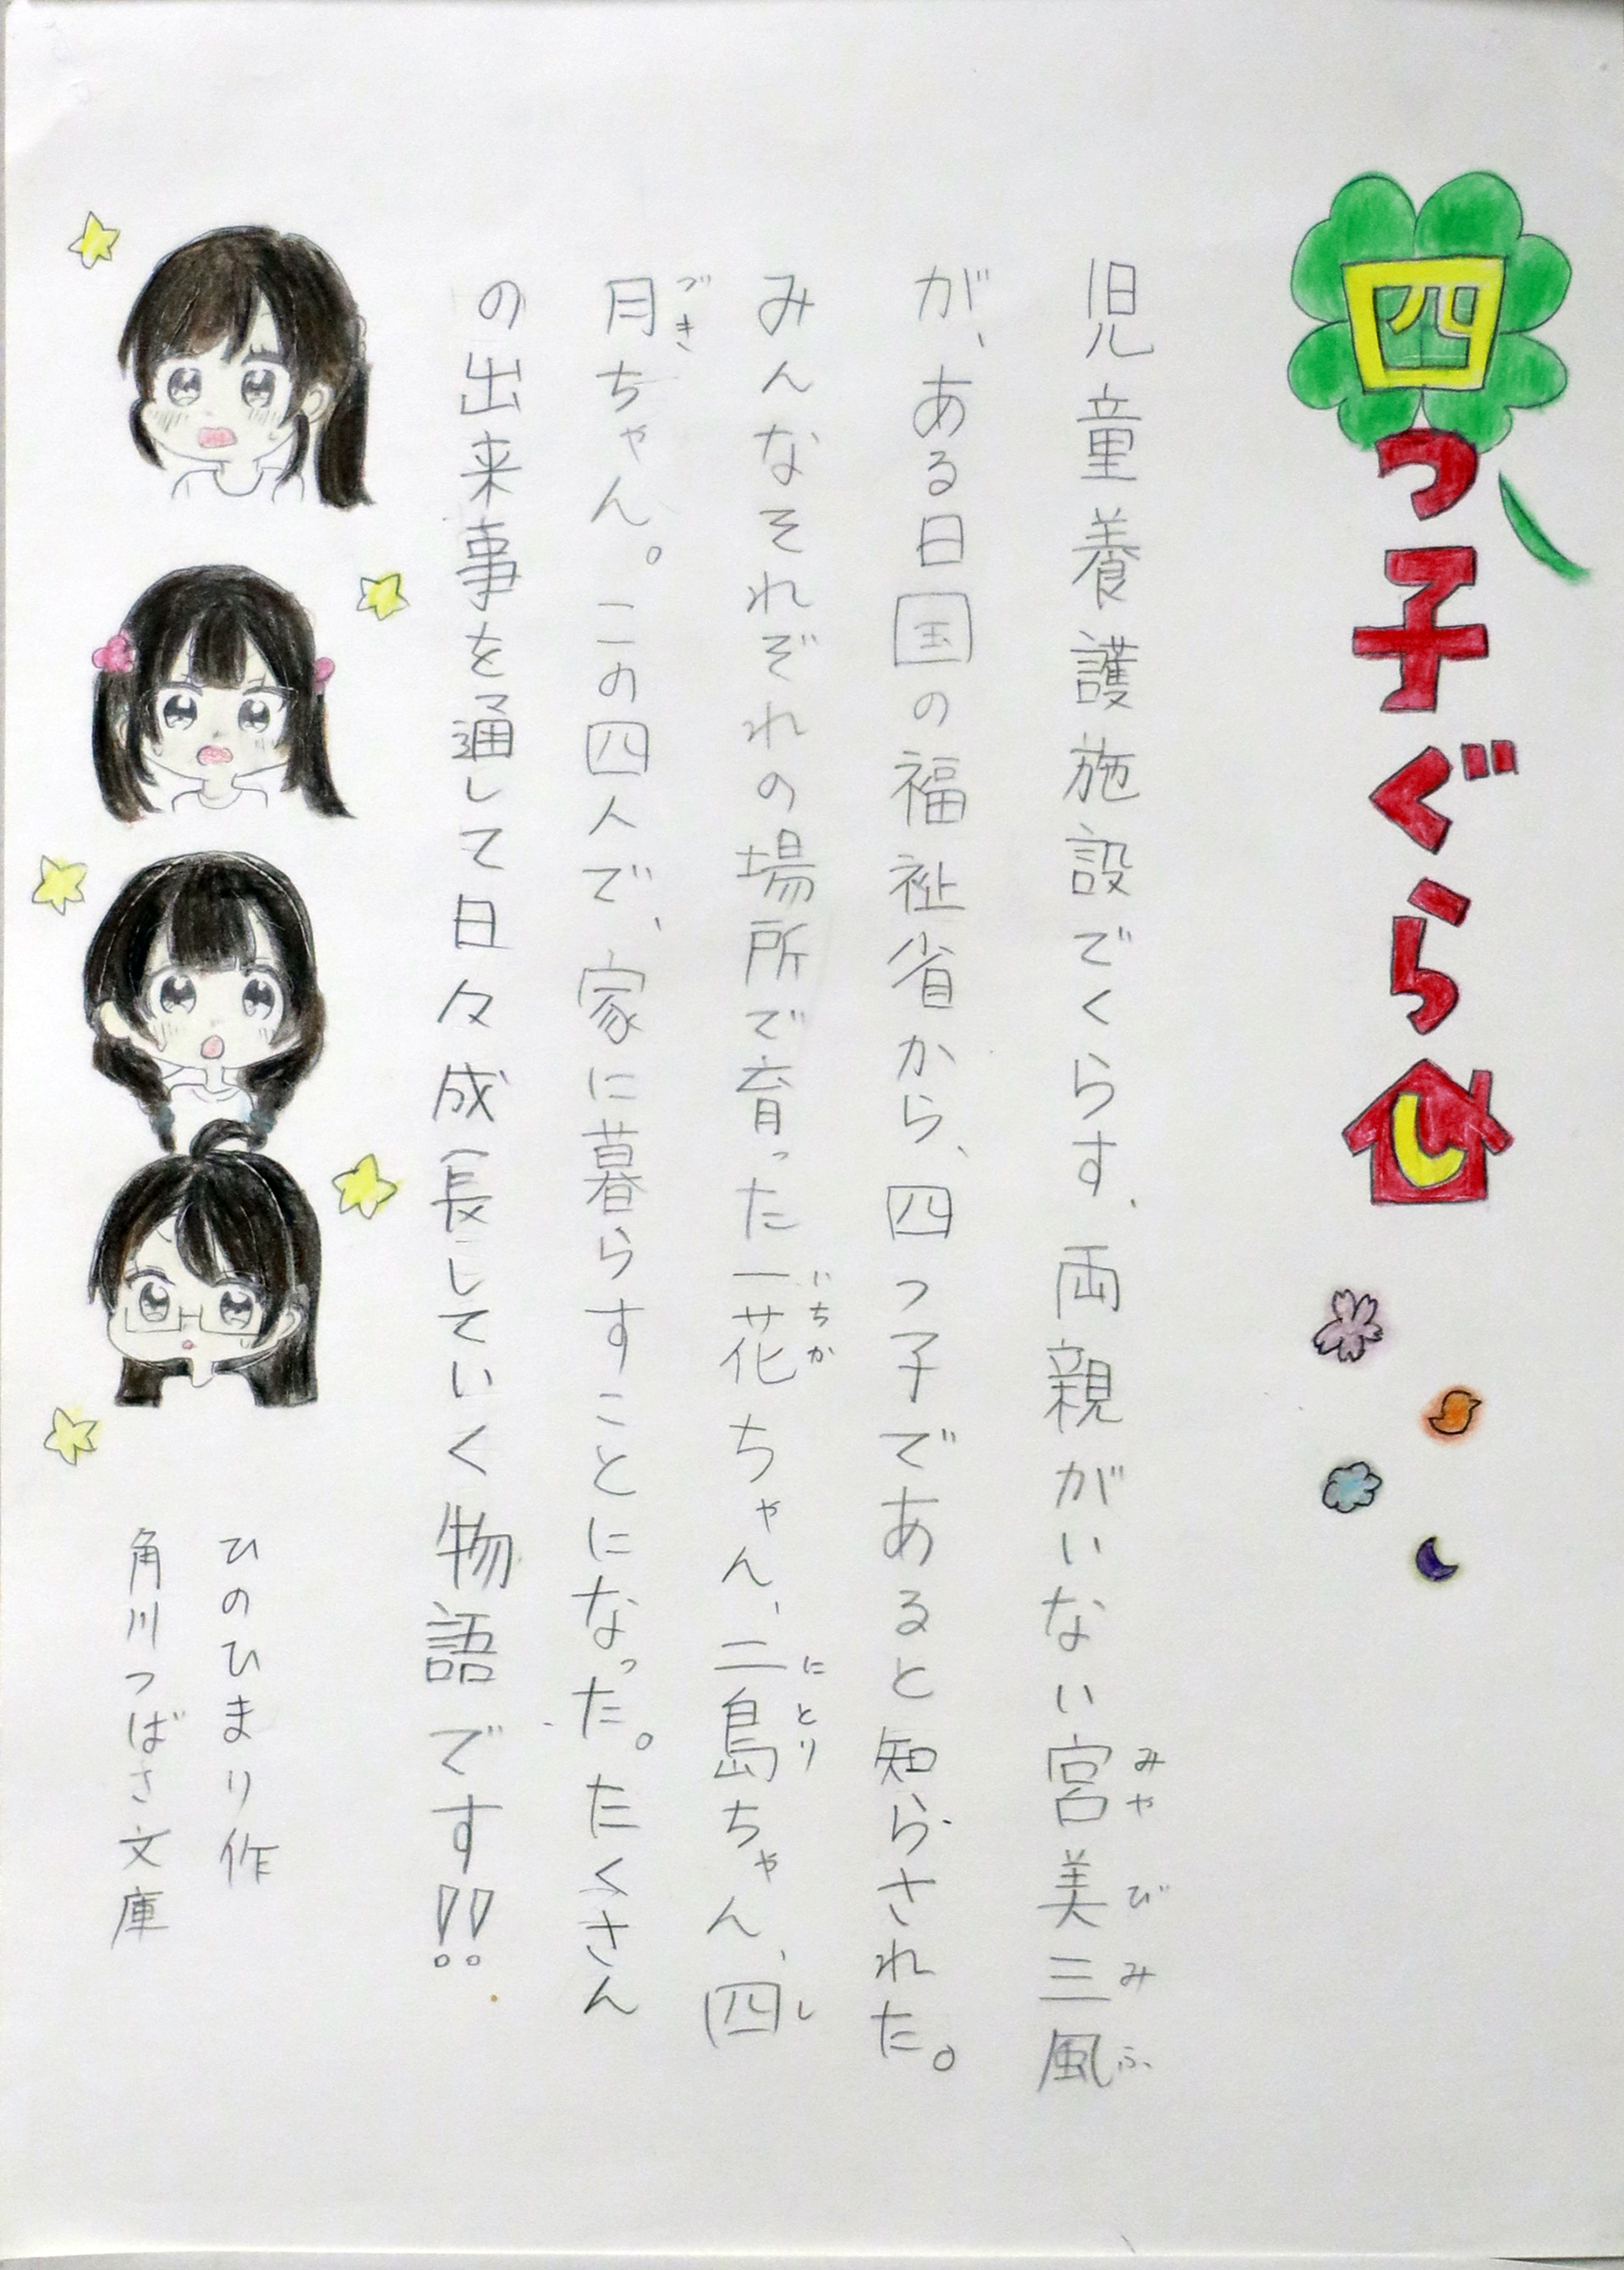 四つ子ぐらし
児童養護施設でくらす、両親がいない宮美三風
みやびみふ
が、ある日国の福祉省から、四つ子であると知らされた。
みんなそれぞれの場所で育った一花ちゃん、二鳥ちゃん、四
いちか
にとり
し
月ちゃん。この四人で、家に暮らすことになった。たくさん
づき
の出来事を通して日々成長していく物語です!!
ひのひまり作
角川つばさ文庫